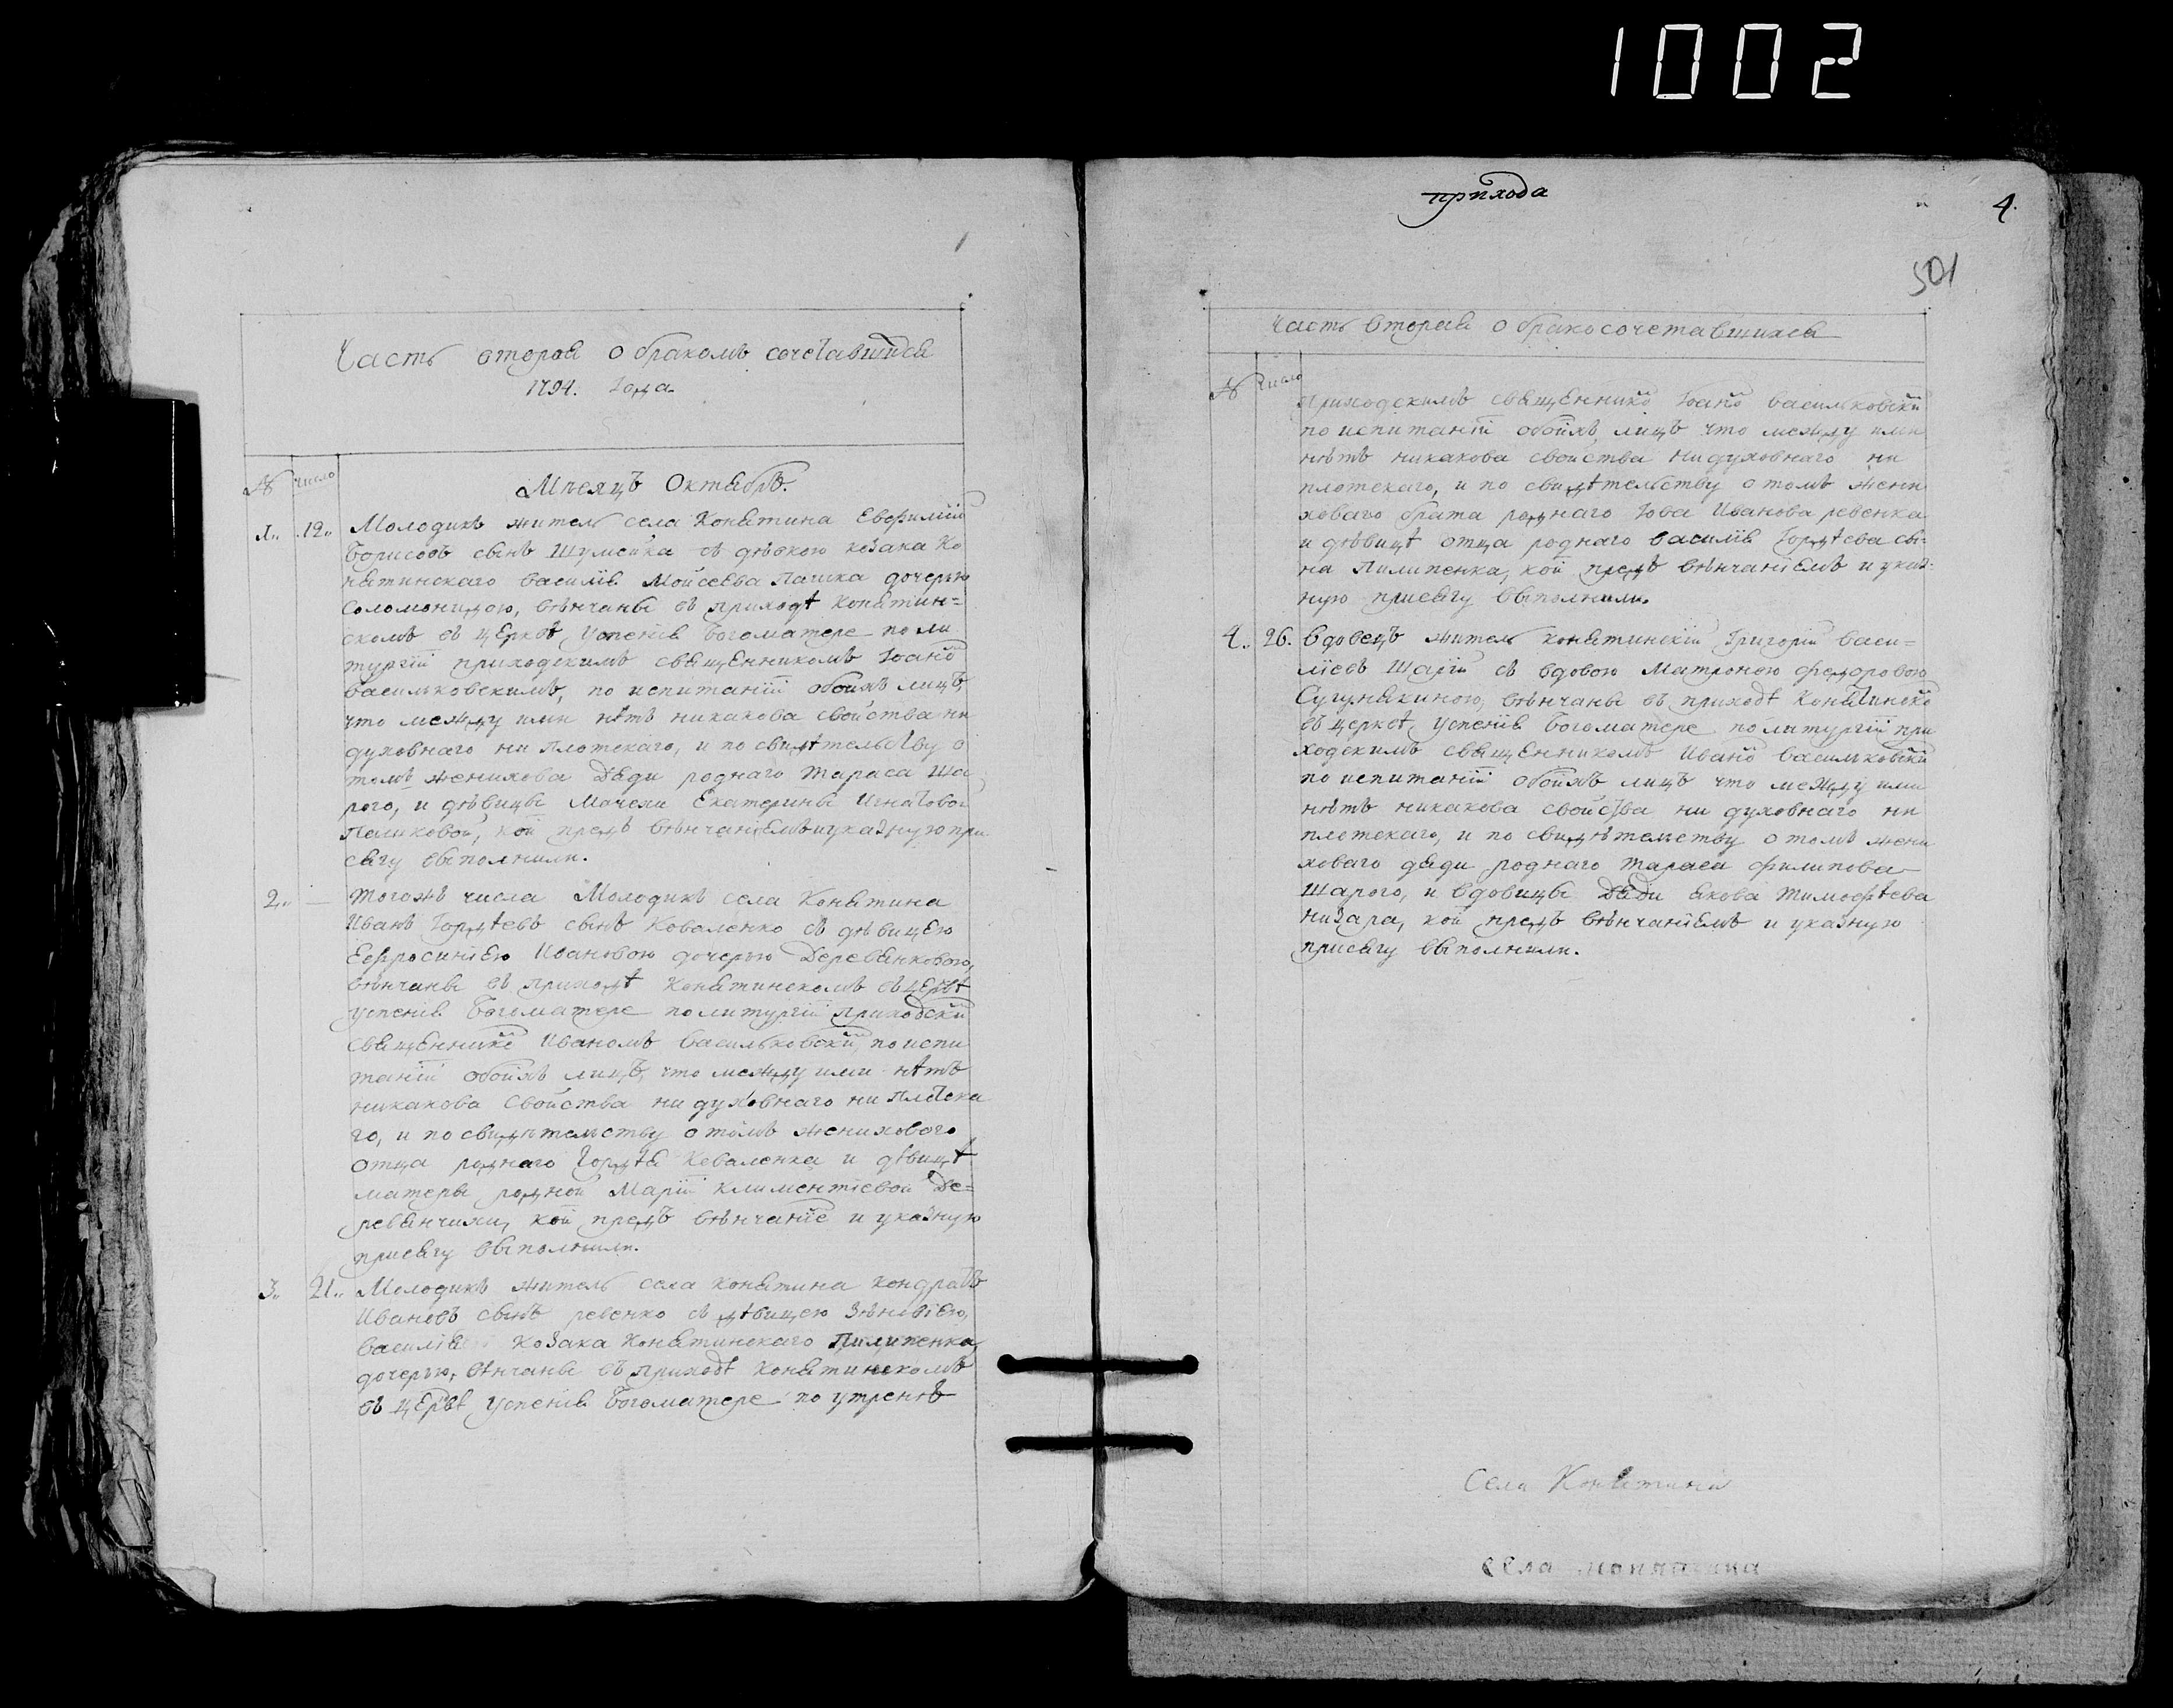 1002
прихода
4.
501
Часть вторая о бракомъ сочетавшихся
1794. года.
№ число
Мѣсяцъ Октябрь.
1. 12. Молодикъ житель села Конятина Евфимій
Борисовъ сынъ Шумейка съ дѣвкою козака Ко
нятинскаго Василія Мойсеева Пашка дочерью
Соломонидою, вѣнчаны въ приходѣ Конятин=
скомъ въ церквѣ Успенія Богоматере по ли
тургіи приходскимъ священникомъ Іоано
Васильковскимъ, по испитаніи обоихъ лицъ,
что между ими нѣтъ никакова свойства ни
духовнаго ни плотскаго, и по свидѣтельству о
томъ женихова дяди роднаго Тараса Ша
рого, и дѣвицы мачехи Екатерины Игнатовой
Пашковой, кои предъ вѣнчаніемъ и указную при
сягу выполнили.
2. — Тогожъ числа Молодикъ села Конятина
Иванъ Гордѣевъ сынъ Коваленко съ дѣвицею
Евфросиніею Ивановою дочерью Деревянковою,
вѣнчаны въ приходѣ Конятинскомъ въ церквѣ
Успенія Богоматере по литургіи приходски
священнико Иваномъ Васильковски, по испи
таніи обоихъ лицъ, что между ими нѣтъ
никакова свойства ни духовнаго ни плотска
го, и по свидѣтельству о томъ женихового
отца роднаго Гордѣя Коваленка и дѣвицѣ
матеры родной Маріи Климентіевой Де=
ревянчихи, кои предъ вѣнчаніе и указную
присягу выполнили.
3. 21. Молодикъ житель села Конятина Кондратъ
Ивановъ сынъ Ревенко съ дѣвицею Зѣновіею,
Василія Козака Конятинскаго Пилипенка
дочерью, вѣнчаны въ приходѣ Конятинскомъ
въ церквѣ Успенія Богоматере по утренѣ
Часть вторая о бракосочетавшихся
№ число
приходскимъ священнико Іоано Васильковски
по испитаніи обоихъ лицъ что между ими
нѣтъ никакова свойства ни духовнаго ни
плотскаго, и по свидѣтельству о томъ жени
ховаго брата роднаго Іова Иванова Ревенка
и дѣвицѣ отца роднаго Василія Гордѣева сы=
на Пилипенка, кои предъ вѣнчаніемъ и указ=
ную присягу выполнили.
4. 26. Вдовецъ житель конятинскій Григорій Васи=
ліевъ Шарій съ вдовою Матроною Федоровою
Сугунякиною, вѣнчаны въ приходѣ Конятинско
въ церквѣ Успенія Богоматере по литургіи при
ходскимъ священникомъ Ивано Васильковски
по испитаніи обоихъ лицъ что между ими
нѣтъ никакова свойства ни духовнаго ни
плотскаго, и по свидѣтельству о томъ жени
ховаго дяди роднаго Тараса Филипова
Шарого, и вдовицы дяди Якова Тимофѣева
Низара, кои предъ вѣнчаніемъ и указную
присягу выполнили.
Села Конятина
села